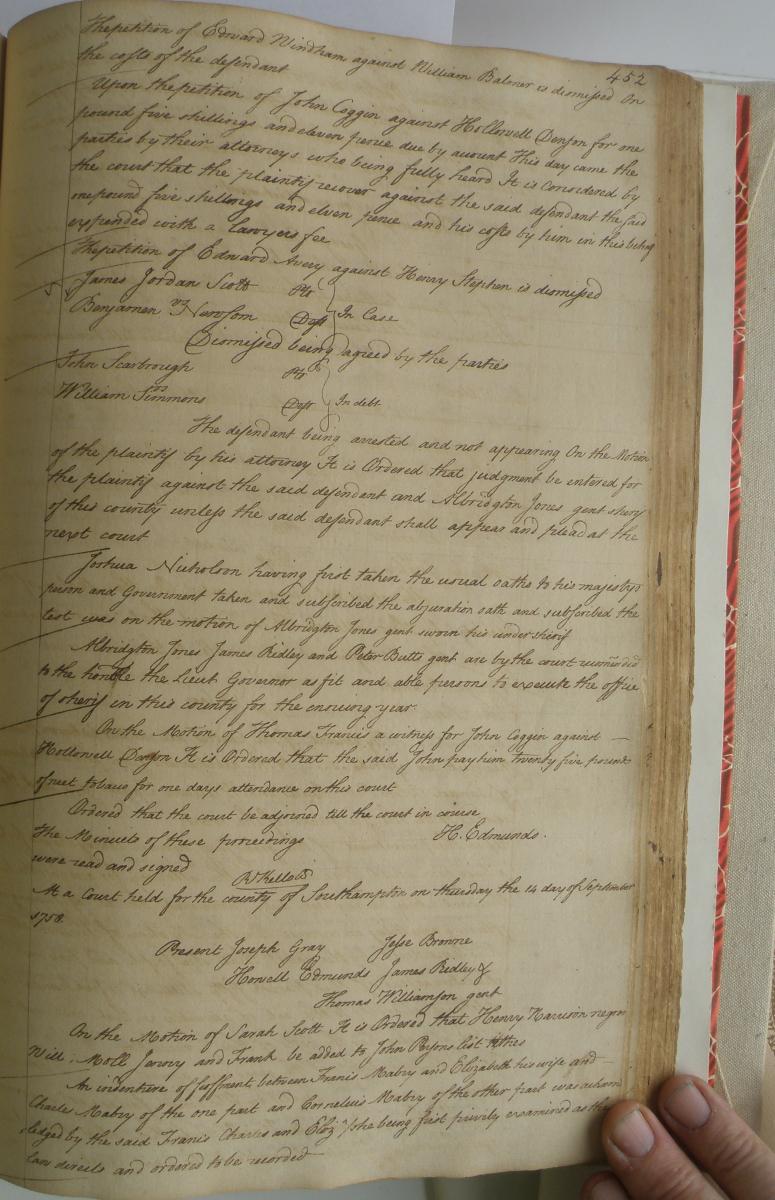 452
The petition of Edward Windham against William Balmer is dismissed On
the costs of the defendant
Upon the petition of John Coggin against Hollowell Denson for one
pound five shillings and eleven pence due by acount This day came the
parties by their attorneys who being fully heard It is Considered by
the court that the plaintif recover against the said defendant the said
one pound five shillings and elven pence and his costs by him in this behalf
expended with a lawyers fee
The petition of Edward Avery against Henry Stephen is dismissed
James Jordan Scott Plt
Benjamen vs Newsom Deft In Case
Dismissed being agreed by the parties
John Scarbrough Plt
vs
William Simmons Deft In debt
The defendant being arrested and not appearing On the Motion
of the plaintif by his attorney It is Ordered that judgment be entered for
the plaintif against the said defendant and Albridgton Jones gent sherif
of this county unless the said defendant shall appear and plead at the
next court
Joshua Nicholson having first taken the usual oaths to his majestys
person and Government taken and subscribed the abjuration oath and subscribed the
test was on the motion of Albridgton Jones gent sworn his undersherif
Albridgton Jones James Ridley and Peter Butts gent are by the court
to the honble the Lieut Governor as fit and able persons to execute the office
of sherif in this county for the ensuing year.
On the Motion of Thomas Francis a witness for John Coggin against
Hollowell Denson It is Ordered that the said John pay him twenty five pounds
of neet tobaco for one days attendance on this court
Ordered that the court be adjorned till the court in course
The Minuets of these proceedings H. Edmunds.
were read and signed
R Kello
At a Court held for the county of Southampton on thursday the 14 day of September
1758.
Present Joseph Gray Jesse Browne
Howell Edmunds James Ridley &
Thomas Williamson gent
On the Motion of Sarah Scott It is Ordered that Henry Harrison negroe
Will Moll and Frank be added to John list tithes
An indenture of feoffment between Francis Mabry and Elizabeth his wife and
Charles Mabry of the one part and Cornelius Mabry of the other part was acknow
ledged by the said Francis Charles and Eliz she being first privily examined as the
law directs and ordered to be recorded